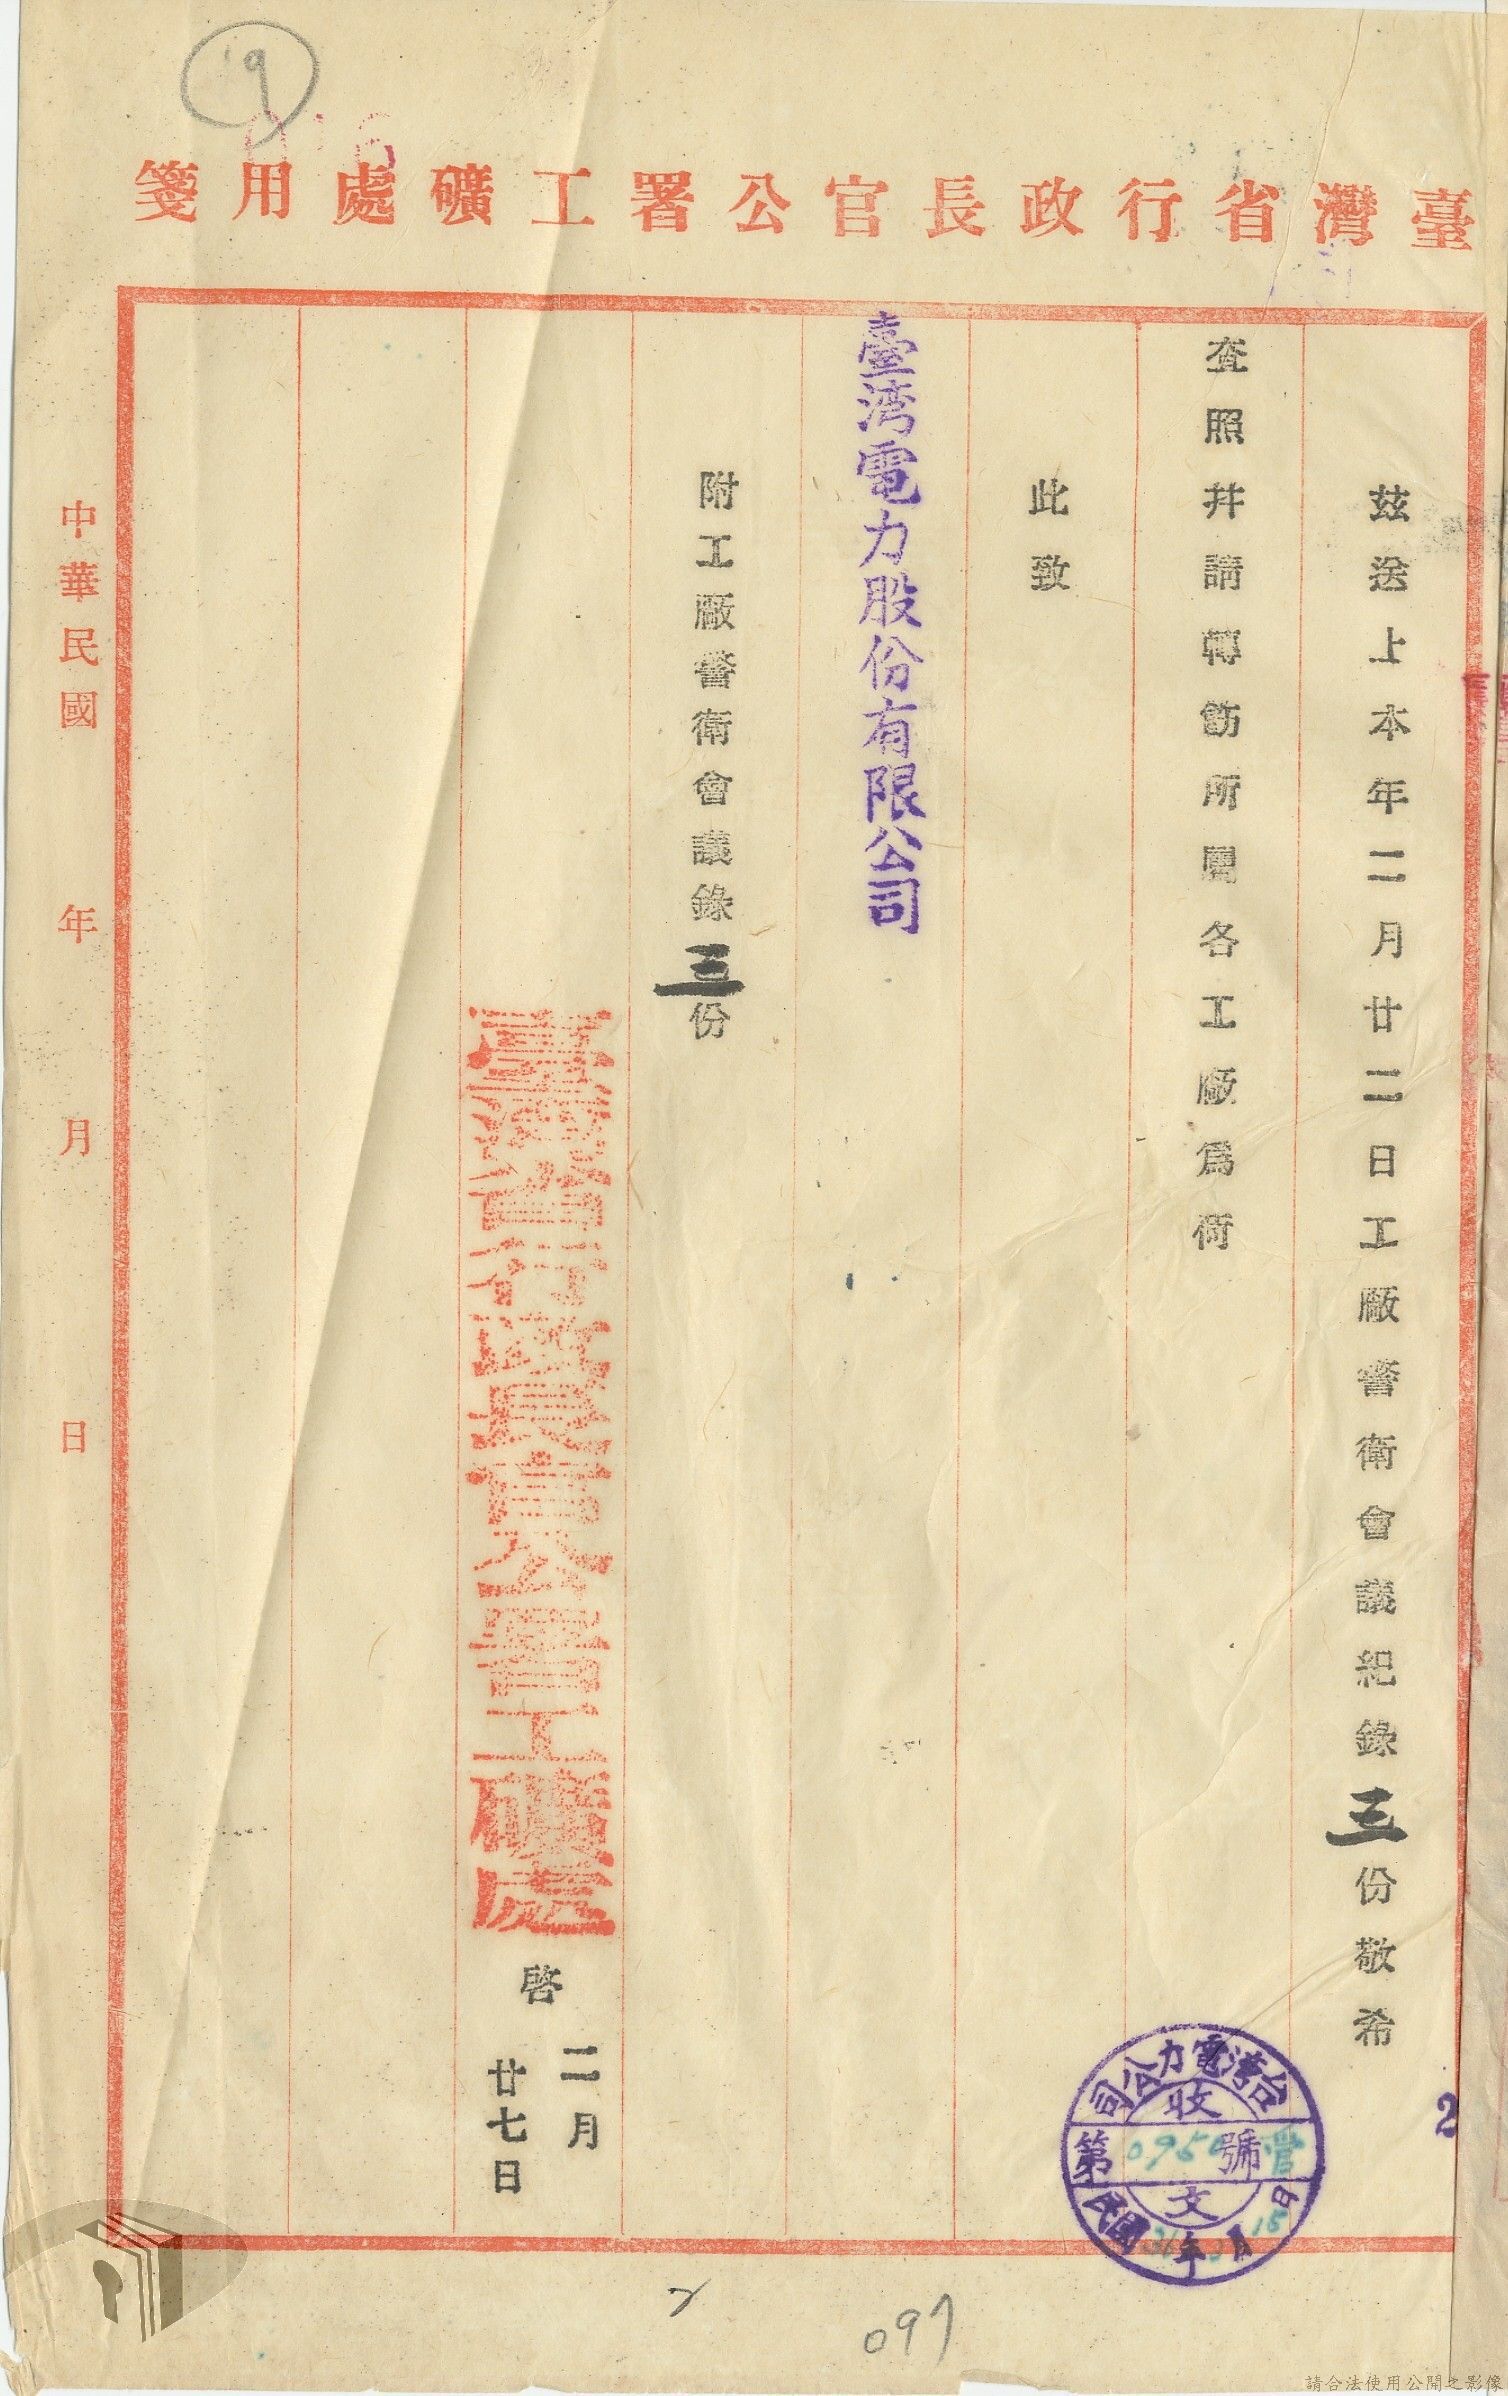 9
臺灣省行政長官公署工礦處用箋
茲送上本年二月廿二日工廠警衛會議紀錄三份敬希
查照并請轉飭所屬各工廠為荷
此致
臺湾電力股份有限公司
附工廠警衛會議錄三份
臺灣省行政長官公署工礦處
啓
二月
廿七日
中華民國 年 月 日
台湾電力公司
收
第 號
文
民國 年 月 15日
2
097
請合法使用公開之影像